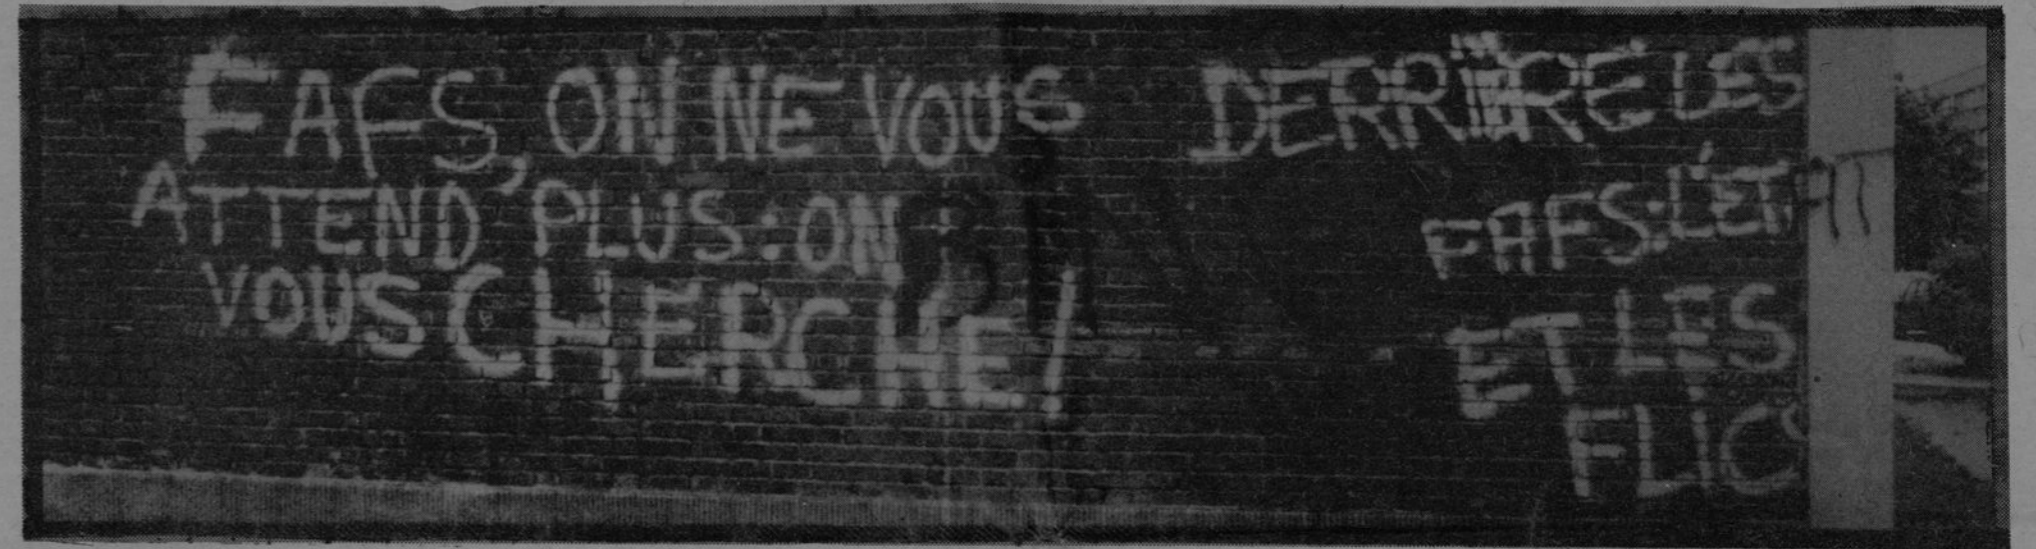 FAFS, ON NE VOUS
ATTEND PLUS : ON
VOUS CHERCHE !
DERRIÈRE LES
FAFS : L'ÉTAT
ET LES
FLICS